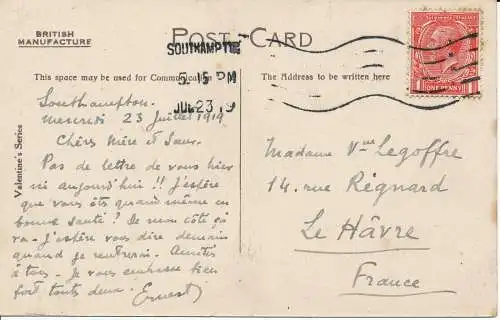 BRITISH
MANUFACTURE
POST CARD
SOUTHAMPTON
5. 15 PM
JUL 23 19
ONE PENNY
This space may be used for Communication
The Address to be written here
Valentine's Series
Southampton.
Mercredi 23 Juillet 1919
Chères Mère et Sœur
Pas de lettre de vous hier
ni aujourd'hui!! J'espère
que vous êts quand même en
bonne santé? De mon côté ça
va. J'espère vous dire demain
quand je rentrerai. Amitiés
à tous. Je vous embrasse bien
fort toutes deux. Ernest
Madame Vve Legoffre
14. rue Régnard
Le Hâvre
France